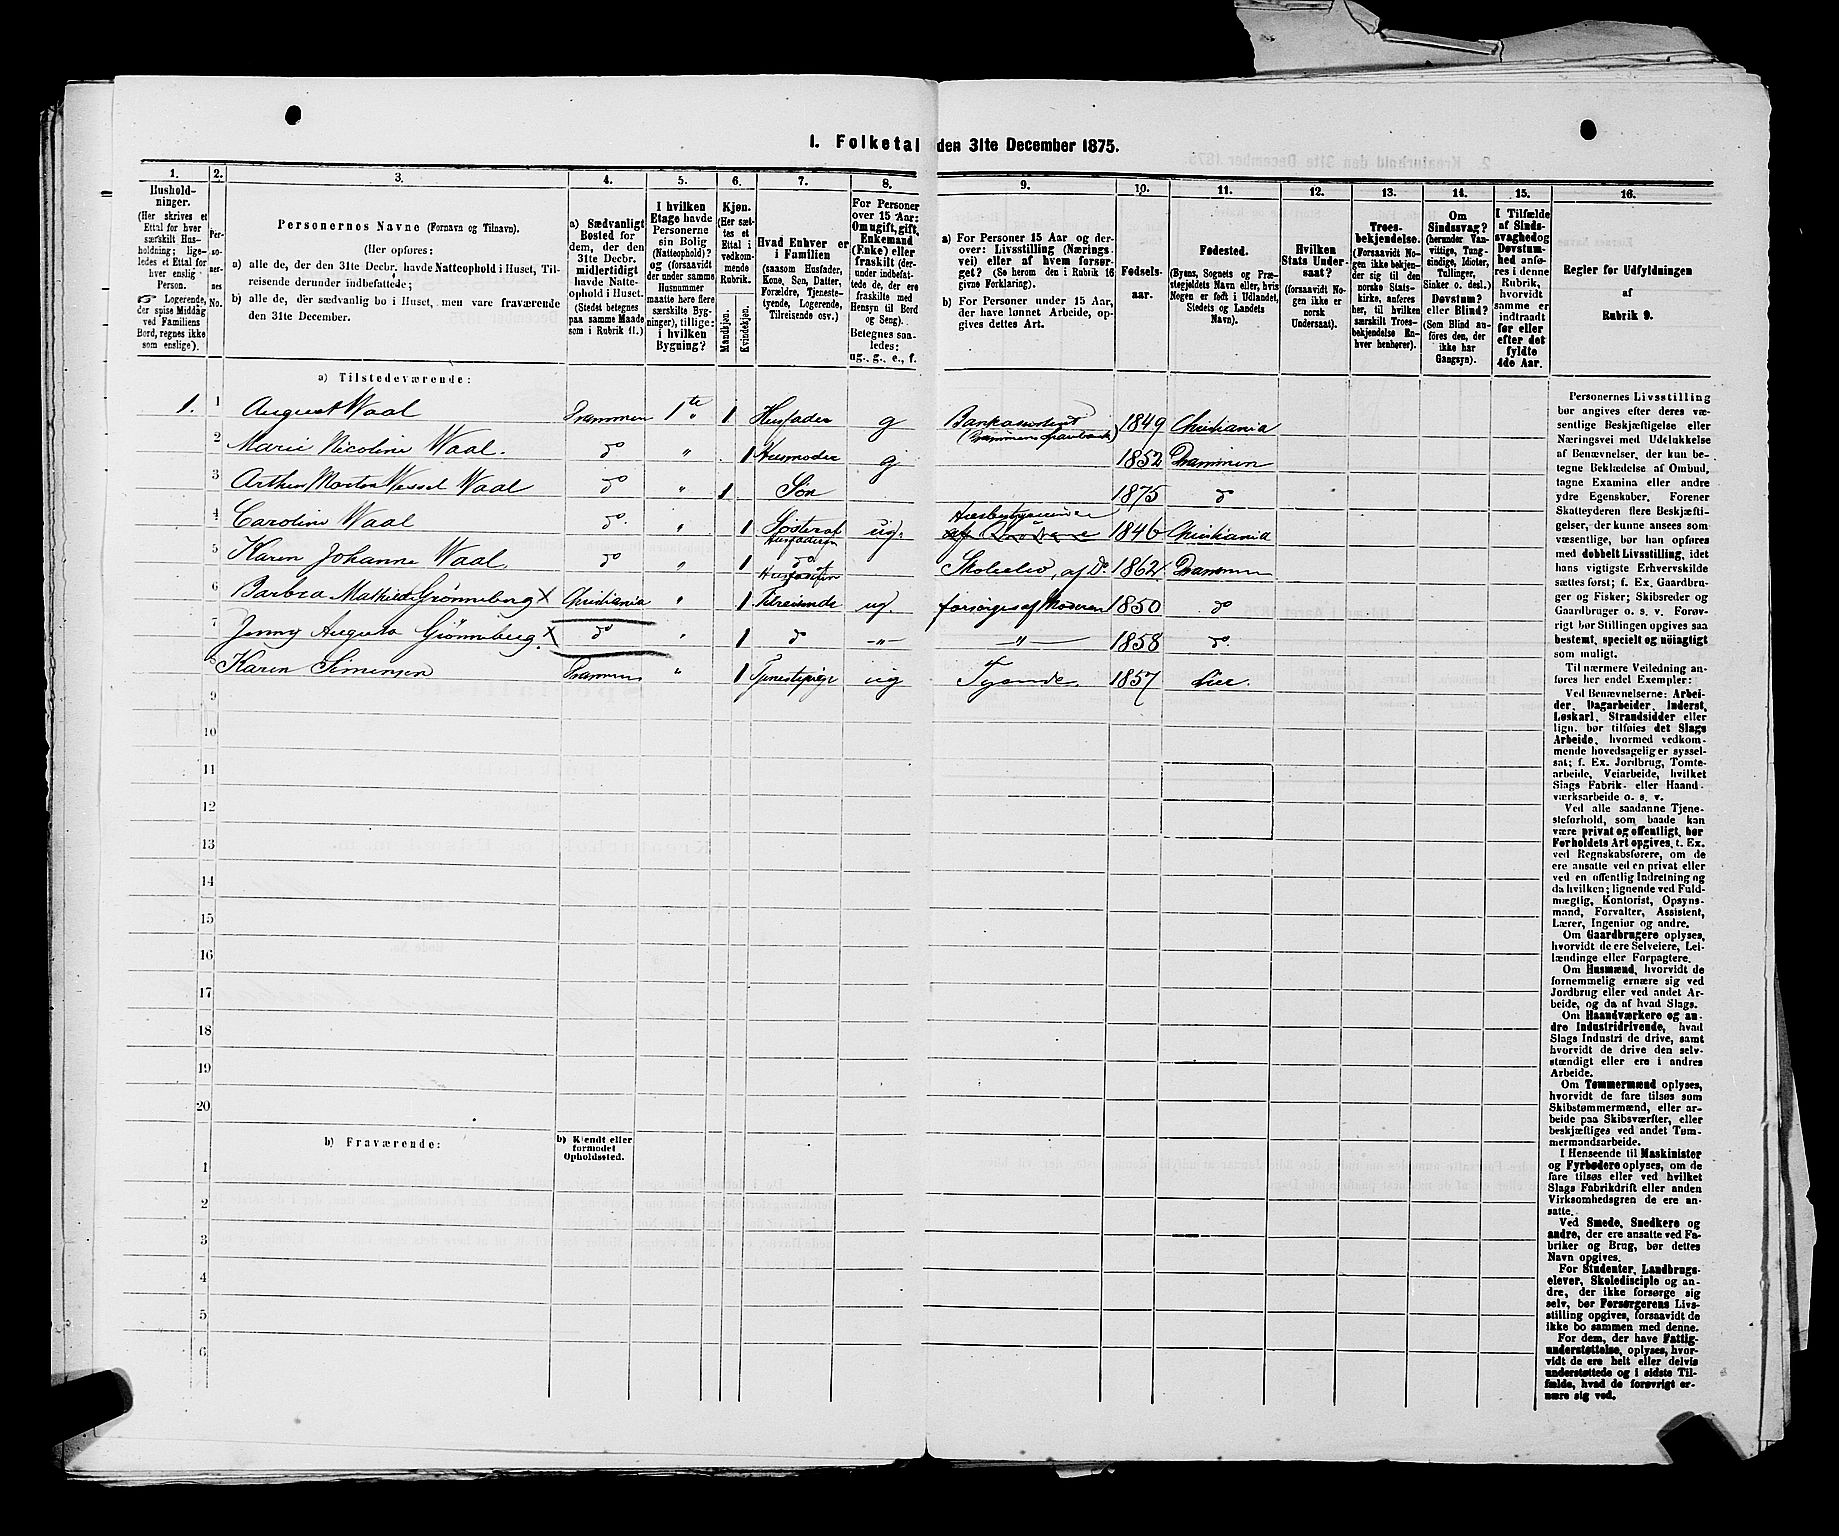 1. Folketal den 31te December 1875.
1. 2. 3. 4. 5. 6. 7. 8. 9. 10. 11. 12. 13. 14. 15. 16.
Hushold-
ninger.
(Her skrives et
Ettal for hver
særskilt Hus-
holdning; lige-
ledes et Ettal for
hver enslig
Person.
Logerende,
der spise Middag
ved Familiens
Bord, regnes ikke
som enslige).
Per-
soner-
nes
No.
Personernes Navne (Fornavn og Tilnavn).
(Her opføres:
a) alle de, der den 31te Decbr. havde Natteophold i Huset, Til-
reisende derunder indbefattede;
b) alle de, der sædvanlig bo i Huset, men vare fraværende
den 31te December.
a) Sædvanligt
Bosted for
dem, der den
31te Decbr.
midlertidigt
havde Natte-
ophold i Huset.
(Stedet betegnes
paa samme Maade
som i Rubrik 11.)
I hvilken
Etage havde
Personerne
sin Bolig
(Natteophold)?
og (forsaavidt
der under samme
Husnummer
maatte høre flere
særskilte Byg-
ninger), tillige:
i hvilken
Bygning?
Kjøn.
(Her sæt-
tes et
Ettal i
vedkom-
mende
Rubrik.
Mandkjøn.
Kvindekjøn.
Hvad Enhver er
i Familien
(saasom Husfader,
Kone, Søn, Datter,
Forældre, Tjeneste-
tyende, Logerende,
Tilreisende osv.)
For Personer
over 15 Aar:
Om ugift, gift,
Enkemand
(Enke) eller
fraskilt (der-
under indbefat-
tede de, der ere
fraskilte med
Hensyn til Bord
og Seng).
Betegnes saa-
ledes:
ug., g., e., f.
a) For Personer 15 Aar og der-
over: Livsstilling (Nærings-
vei) eller af hvem forsør-
get? (Se herom den i Rubrik 16
givne Forklaring).
b) For Personer under 15 Aar,
der have lønnet Arbeide, op-
gives dettes Art.
Fødsels-
aar.
Fødested.
(Byens, Sognets og Præ-
stegjeldets Navn eller, hvis
Nogen er født i Udlandet,
Stedets og Landets
Navn).
Hvilken
Stats Under-
saat?
(forsaavidt No-
gen ikke er
norsk
Undersaat).
Troes-
bekjendelse.
(Forsaavidt No-
gen ikke bekjen-
der sig til den
norske Stats-
kirke, anføres
her, til hvilken
særskilt Troes-
bekjendelse En-
hver henhører).
Om
Sindssvag?
(herunder Van-
vittige, Tung-
sindige, Idioter,
Tullinger,
Sinker o. desl.)
Døvstum?
eller Blind?
(Som Blind an-
føres den, der
ikke har
Gangsyn).
I Tilfælde
af Sinds-
svaghed og
Døvstum-
hed anfø-
res i denne
Rubrik,
hvorvidt
samme er
indtraadt
før eller
efter det
fyldte
4de Aar.
Regler for Udfyldningen
af
Rubrik 9.
a) Tilstedeværende:
1. 1 August Waal Drammen 1te 1 Husfader g Bankassistent (Drammens Sparebank) 1849 Christiania
2 Marie Nicoline Waal. do " 1 Husmoder g 1852 Drammen
3 Arthur Morten Wessel Waal do " 1 Søn 1875 do
4 Caroline Waal do. " 1 Søster af Husfaderen ug. Husbestyrerinde 1846 Christiania
5 Karen Johanne Waal do " 1 do Husfaderen Skoleelev, af Do. 1862 Drammen
6 Barbra Mathilde Grønneberg x Christiania " 1 Tilreisende ug. forsørges af Moderen 1850 do
7 Jenny Augusta Grønneberg. x do " 1 do -"- -"- 1858 do.
8 Karen Simensen Drammen " 1 Tjenestepige ug Tyende. 1857 Lier.
9
10
11
12
13
14
15
16
17
18
19
20
b) Fraværende:
b) Kjendt eller
formodet
Opholdssted.
1
2
3
4
5
6
Personernes Livsstilling
bør angives efter deres væ-
sentlige Beskjæftigelse eller
Næringsvei med Udelukkelse
af Benævnelser, der kun be-
tegne Beklædelse af Ombud,
tagne Examina eller andre
ydre Egenskaber. Forener
Skatteyderen flere Beskjæfti-
gelser, der kunne ansees som
væsentlige, bør han opføres
med dobbelt Livsstilling, idet
hans vigtigste Erhvervskilde
sættes først; f. Ex. Gaardbru-
ger og Fisker; Skibsreder og
Gaardbruger o. s. v. Forøv-
rigt bør Stillingen opgives saa
bestemt, specielt og nøiagtigt
som muligt.
Til nærmere Veiledning an-
føres her endel Exempler:
Ved Benævnelserne: Arbei-
der, Dagarbeider, Inderst,
Løskarl, Strandsidder eller
lign. bør tilføies det Slags
Arbeide, hvormed vedkom-
mende hovedsagelig er syssel-
sat; f. Ex. Jordbrug, Tomte-
arbeide, Veiarbeide, hvilket
Slags Fabrik- eller Haand-
værksarbeide o. s. v.
Ved alle saadanne Tjene-
steforhold, som baade kan
være privat og offentligt, bør
Forholdets Art opgives, t. Ex.
ved Regnskabsførere, om de
ere ansatte ved en privat eller
ved en offentlig Indretning og
da hvilken; lignende ved Fuld-
mægtig, Kontorist, Opsyns-
mand, Forvalter, Assistent,
Lærer, Ingeniør og andre.
Om Gaardbrugere oplyses,
hvorvidt de ere Selveiere, Lei-
lændinge eller Forpagtere.
Om Husmænd, hvorvidt de
fornemmelig ernære sig ved
Jordbrug eller ved andet Ar-
beide, og da af hvad Slags.
Om Haandværkere og an-
dre Industridrivende, hvad
Slags Industri de drive, samt
hvorvidt de drive den selv-
stændigt eller ere i andres
Arbeide.
Om Tømmermænd oplyses,
hvorvidt de fare tilsøs som
Skibstømmermænd, eller ar-
beide paa Skibsværfter, eller
beskjæftiges ved andet Tøm-
mermandsarbeide.
I Henseende til Maskinister
og Fyrbødere oplyses, om de
fare tilsøs eller ved hvilket
Slags Fabrikdrift eller anden
Virksomhedsgren de ere an-
satte.
Ved Smede, Snedkere og
andre, der ere ansatte ved Fa-
briker og Brug, bør dettes
Navn opgives.
For Studenter, Landbrugs-
elever, Skoledisciple og an-
dre, der ikke forsørge sig
selv, bør Forsørgerens Livs-
stilling opgives, forsaavidt de
ikke bo sammen med denne.
For dem, der have Fattig-
understøttelse, oplyses, hvor-
vidt de ere helt eller delvis
understøttede og i sidste Til-
fælde, hvad de forøvrigt er-
nære sig ved.